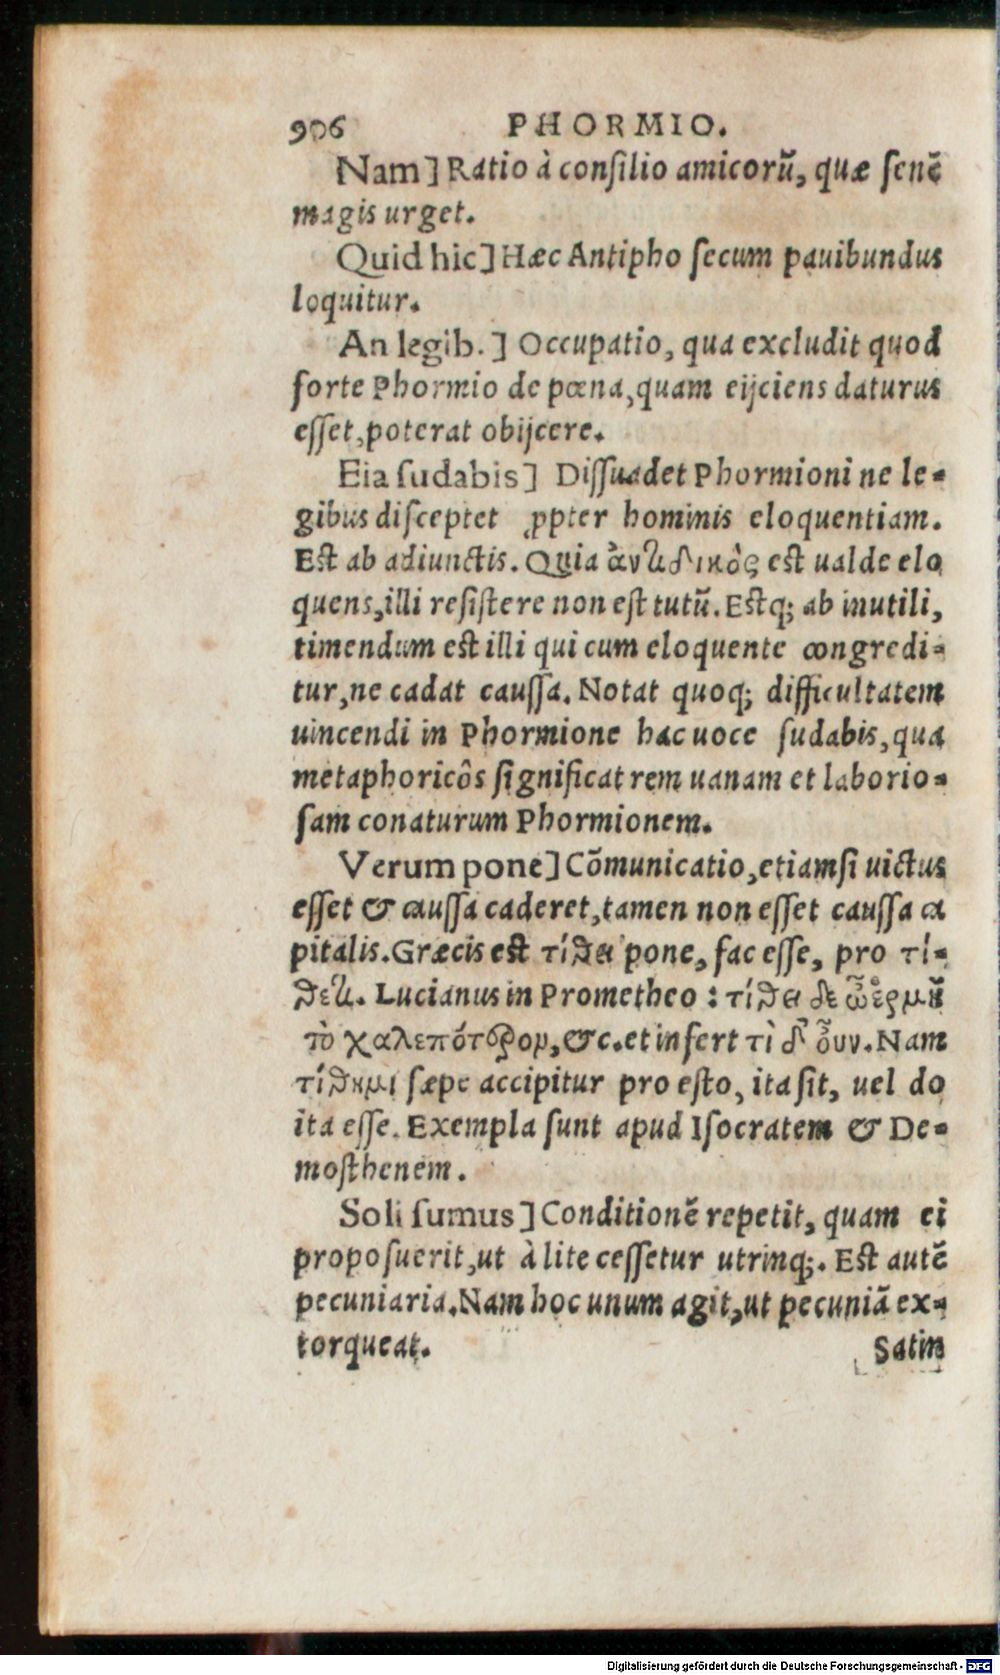 906 PHORMIO.
Nam] Ratio à consilio amicorũ, quæ senẽ
magis urget.
Quid hic] Hæc Antipho secum pauibundus
loquitur.
An legib.] Occupatio, qua excludit quod
forte Phormio de pœna, quam eijciens daturus
esset, poterat obijcere.
Eia sudabis] Dissuadet Phormioni ne le-
gibus disceptet ꝓpter hominis eloquentiam.
Est ab adiunctis. Quia est ualde elo
quens, illi resistere non est tutũ. Estq; ab inutili,
timendum est illi qui cum eloquente congredi-
tur, ne cadat caussa. Notat quoq; difficultatem
uincendi in Phormione hac uoce sudabis, qua
metaphoricôs significat rem uanam et laborio-
sam conaturum Phormionem.
Verum pone] Cõmunicatio, etiamsi uictus
esset & caussa caderet, tamen non esset caussa ca
pitalis. Græcis est τίθει pone, fac esse, pro τί-
θετι. Lucianus in Prometheo: τίθει δε ὦ ἑρμῆ
τὸ χαλεπότερον, &c. et infert τὶ δ' οὖν. Nam
τίθημι sæpe accipitur pro esto, ita sit, uel do
ita esse. Exempla sunt apud Isocratem & De-
mosthenem.
Soli sumus] Conditionẽ repetit, quam ei
proposuerit, ut à lite cessetur utrinq;. Est autẽ
pecuniaria. Nam hoc unum agit, ut pecuniã ex-
torqueat. Satin
Digitalisierung gefördert durch die Deutsche Forschungsgemeinschaft - DFG